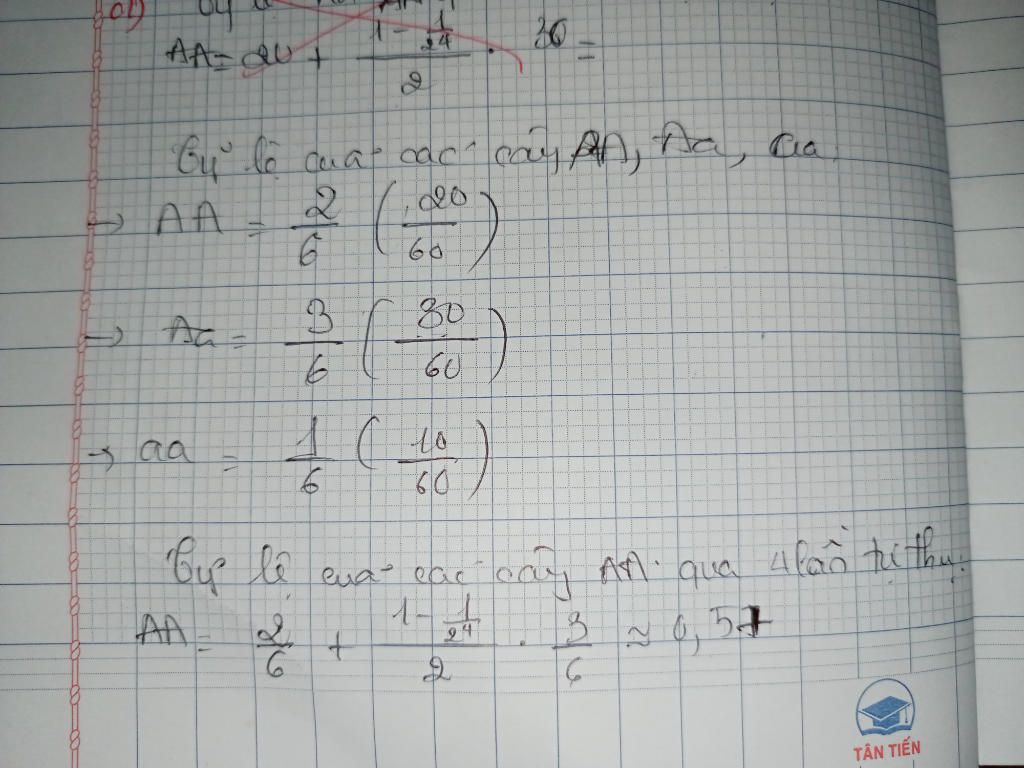 a)
AA = 20 + (1 - 1/2^4)/2 . 30 =
Tỷ lệ của các cây AA, Aa, aa
→ AA = 2/6 (20/60)
→ Aa = 3/6 (30/60)
→ aa = 1/6 (10/60)
Tỷ lệ của các cây AA qua 4 lần tự thụ.
AA = 2/6 + (1 - 1/2^4)/2 . 3/6 ≈ 0,57
TÂN TIẾN